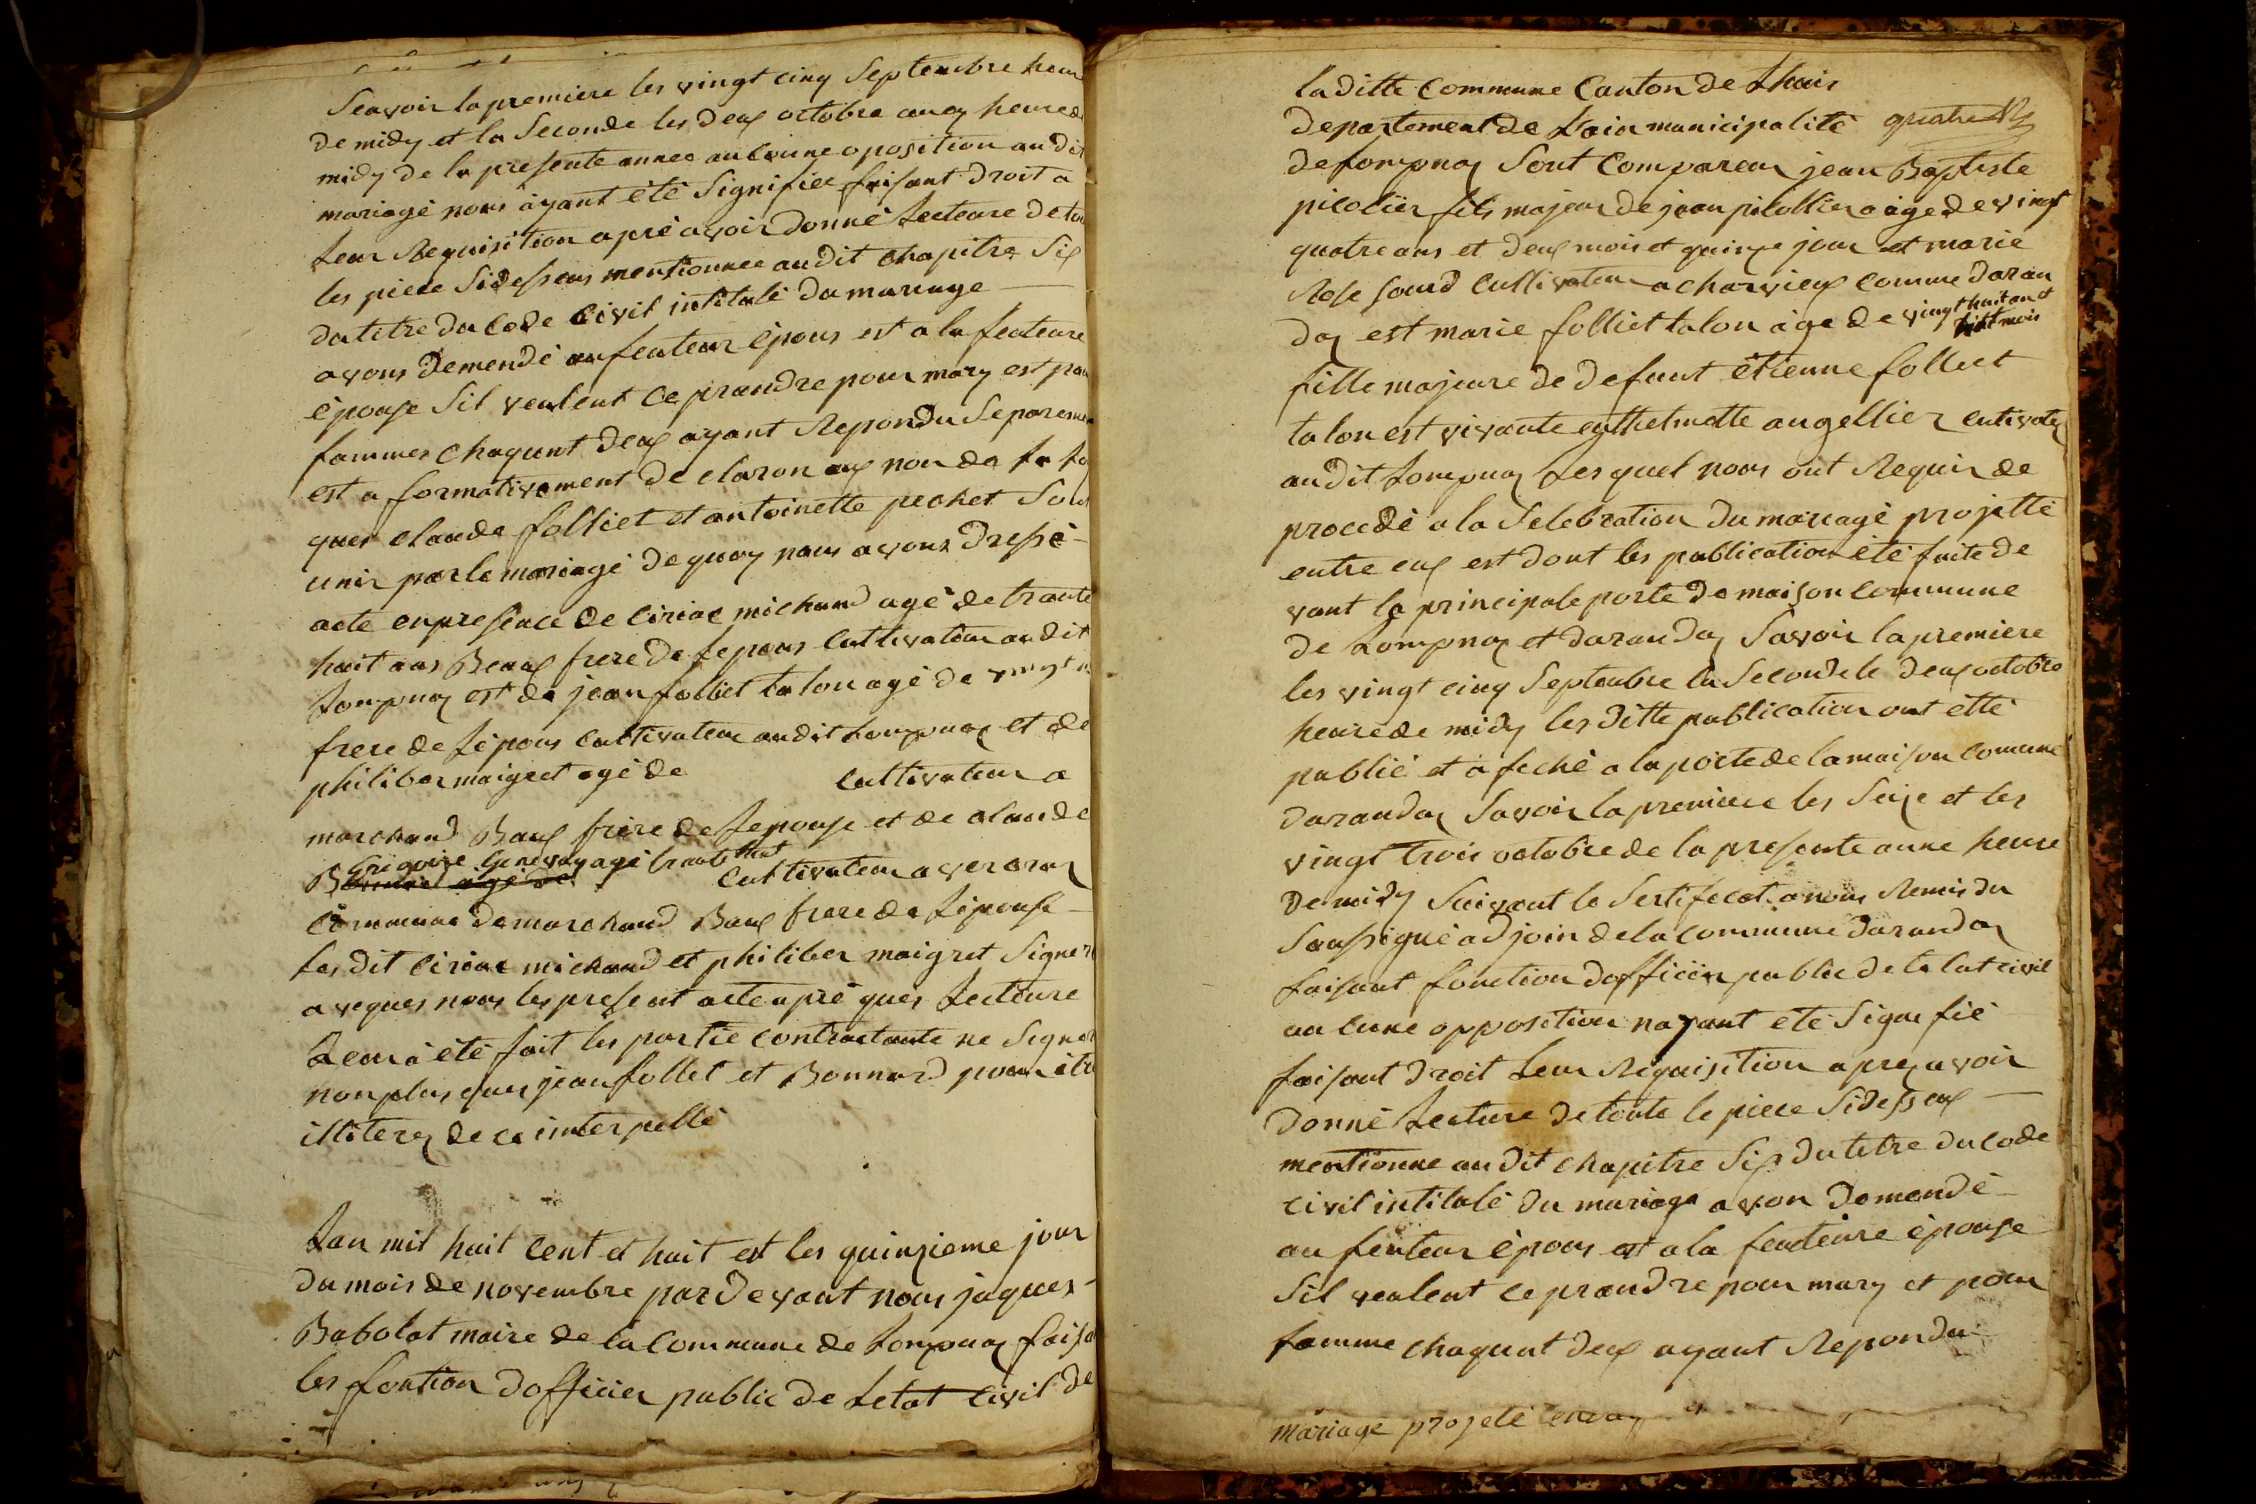 Scavoir la premiere les vingt cinq Septembre heur
de midy et la Seconde les deux octobre aug heure de
midy de la presente annee aucunne oposition au dit
mariage nous ayant été Signifiee faisant droit a
leur Requisition apré avoir donné Lecteure de tou
les piece Sidessus mentionnee au dit Chapitre Six
du titre du Code Civil intitulé du mariage
avons demendé au feuteur épous est a la feuteure
épouse Sil veulent ce prandre pour mary est pour
fammes chaqunt deux ayant Repondu Separemen
est a formativement de claron aux non de la loy
ques claude folliet et antoinette pechet Sont
unir par le mariage de quoy nous avons dressé
acte en presence de ciriac michaud agé de trante
huit ans Beaux frere de Lepous Cultivateur au dit
Lompnas est de jean folliet talon agé de vingt
frere de Lépous cultivateur au dit Lompnas et de
philiber maigret agé de cultivateur a
marchand Baux frere de Lepouse et de claude
Grégoire Genevay agé trante huit
B agé de cultivateur a veroras
Commune de marchand Baux frere de Lépouse
Les dit ciriac michaud et philiber maigret Signer
aveques nous les present acte apré ques Lecteure
Leur a été fait les partie contractante ne Signer
non plus ques jean follet et Bonnard pour être
illiterez de ce interpellé
Lan mil huit Cent et huit est les quinzieme jour
du mois de novembre par devant nous jaques
Babolat maire de la Commune de Lompnas faisa
les fontion dofficier public de Letat Civil de
la ditte Commune Canton de Lhuis
departement de Lain municipalité
de Lompnas Sont Compareu jean Baptiste
picolier fils majeur de jean picollier agé de vingt
quatre ans et deux mois et quinze jour et marie
Rose Gourd Cultivateur a charvieux Comune daran
das est marie folliet talon agé de vingt huit an et
huit mois
fille majeure de defunt étienne folliet
talon est vivante anthelmette augellier cultivateu
au dit Lompnas Les quel nous ont Requir de
procedé a la Selebration du mariage projetté
entre eux est dont les publication été faite de
vant la principale porte de maison Commune
de Lompnas et darandas Savoir la premiere
les vingt cinq Septembre la Seconde le deux octobre
heure de midy les ditte publication ont étté
publié et a feché a la porte de la maison Comune
darandas Savoir la premiere les Seize et les
vingt trois octobre de la presente anne heure
de midy Suivant le Sertifecat a nous Remis du
Soussigné adjoin de la Commune darandas
faisant fonction dofficier public de le lat civil
aucune opposition nayant été Signifié
faisant droit Leur Requisition apres avoir
donné Lecture de toute le piece Sidessus
mentionne au dit chapitre Six du titre du Code
Civil intitulé du mariage avon demendé
au feuteur épous est a la feuteure épouse
Sil veulent ce prandre pour mary et pour
famme chaqunt deux ayant Repondu
mariage projeté